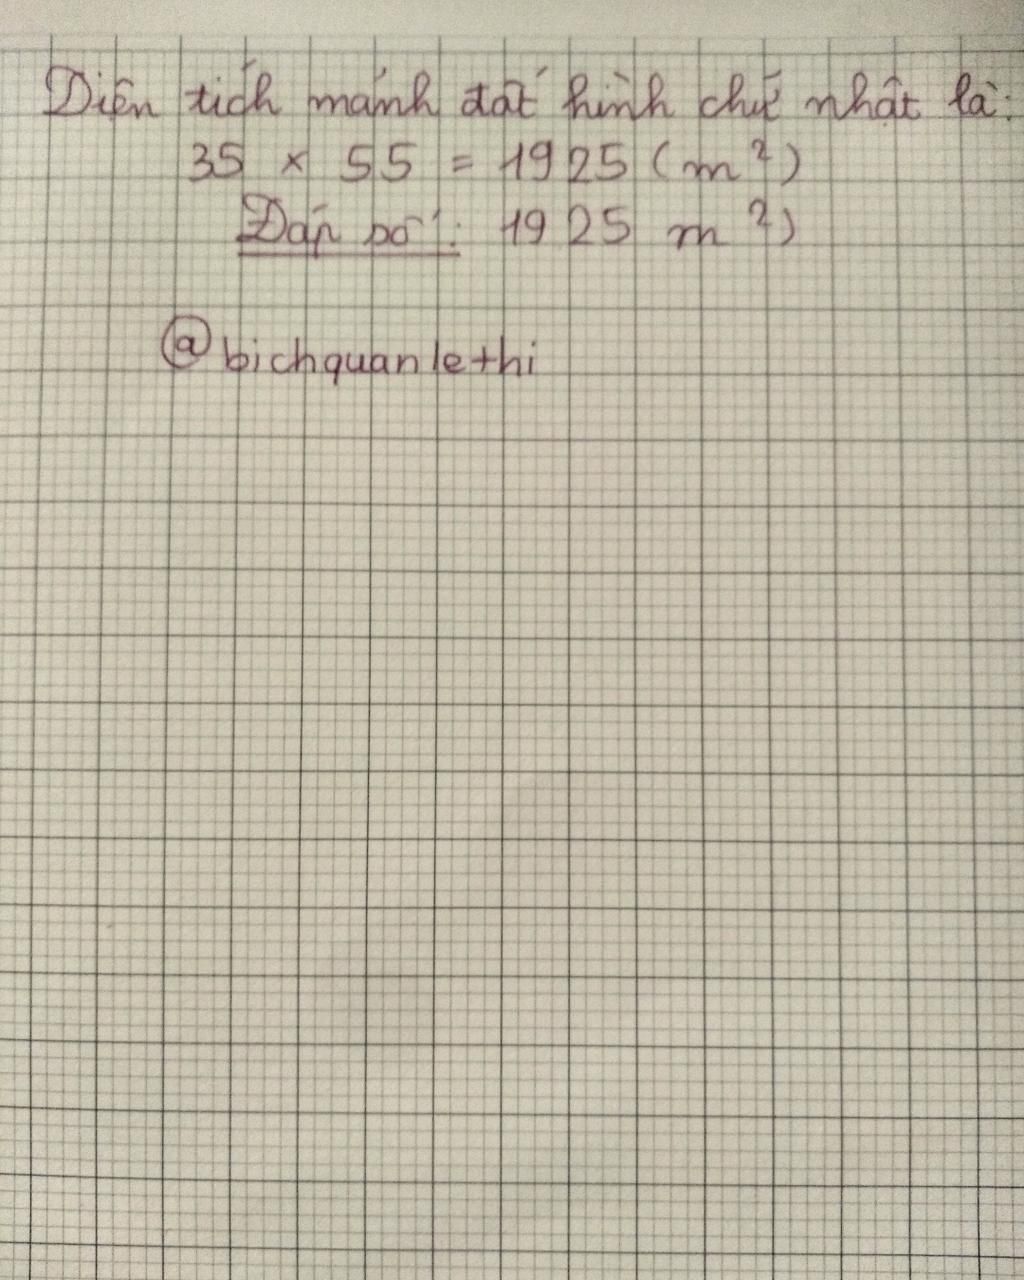 Diện tích mảnh đất hình chữ nhật là:
35 × 55 = 1925 (m²)
Đáp số: 1925 m²)
@bichquanlethi